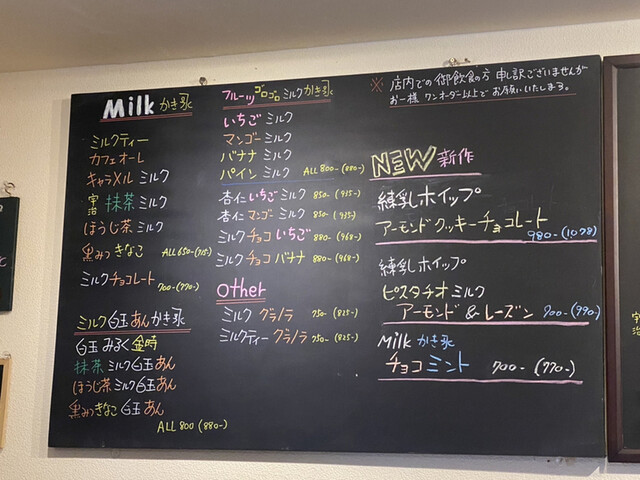 Milk かき氷
ミルクティー
カフェオーレ
キャラメル ミルク
宇治 抹茶 ミルク
ほうじ茶 ミルク
黒みつきなこ ALL 650-(715)
ミルクチョコレート 700-(770-)
ミルク白玉あんかき氷
白玉 みるく金時
抹茶 ミルク白玉 あん
ほうじ茶ミルク白玉あん
黒みつきなこ 白玉 あん
ALL 800 (880-)
フルーツゴロゴロミルクかき氷
いちご ミルク
マンゴー ミルク
バナナ ミルク
パイン ミルク ALL 800-(880-)
杏仁いちごミルク 850-(935-)
杏仁マンゴーミルク 850-(935-)
ミルクチョコいちご 880-(968-)
ミルクチョコバナナ 880-(968-)
Other
ミルク グラノラ 750-(825-)
ミルクティーグラノラ 750-(825-)
※ 店内での御飲食の方 申し訳ございませんが
お一様 ワンオーダー以上で お願いいたします。
NEW 新作
練乳ホイップ
アーモンドクッキーチョコレート
980-(1078)
練乳ホイップ
ピスタチオミルク
アーモンド&レーズン 900-(990-)
Milk かき氷
チョコミント 700-(770-)